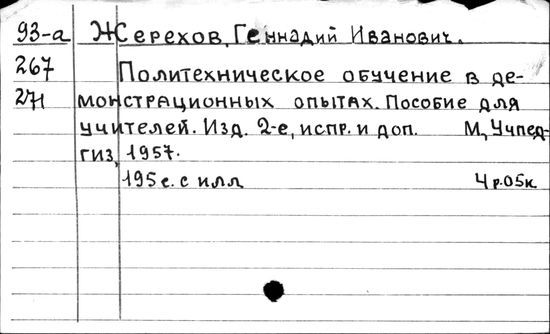 93-а Жерехов, Геннадий Иванович.
267 Политехническое обучение в де-
271 монстрационных опытах. Пособие для
учителей. Изд. 2-е, испр. и доп. М, Учпед-
гиз, 1957.
195 с. с илл 4 р. 05 к